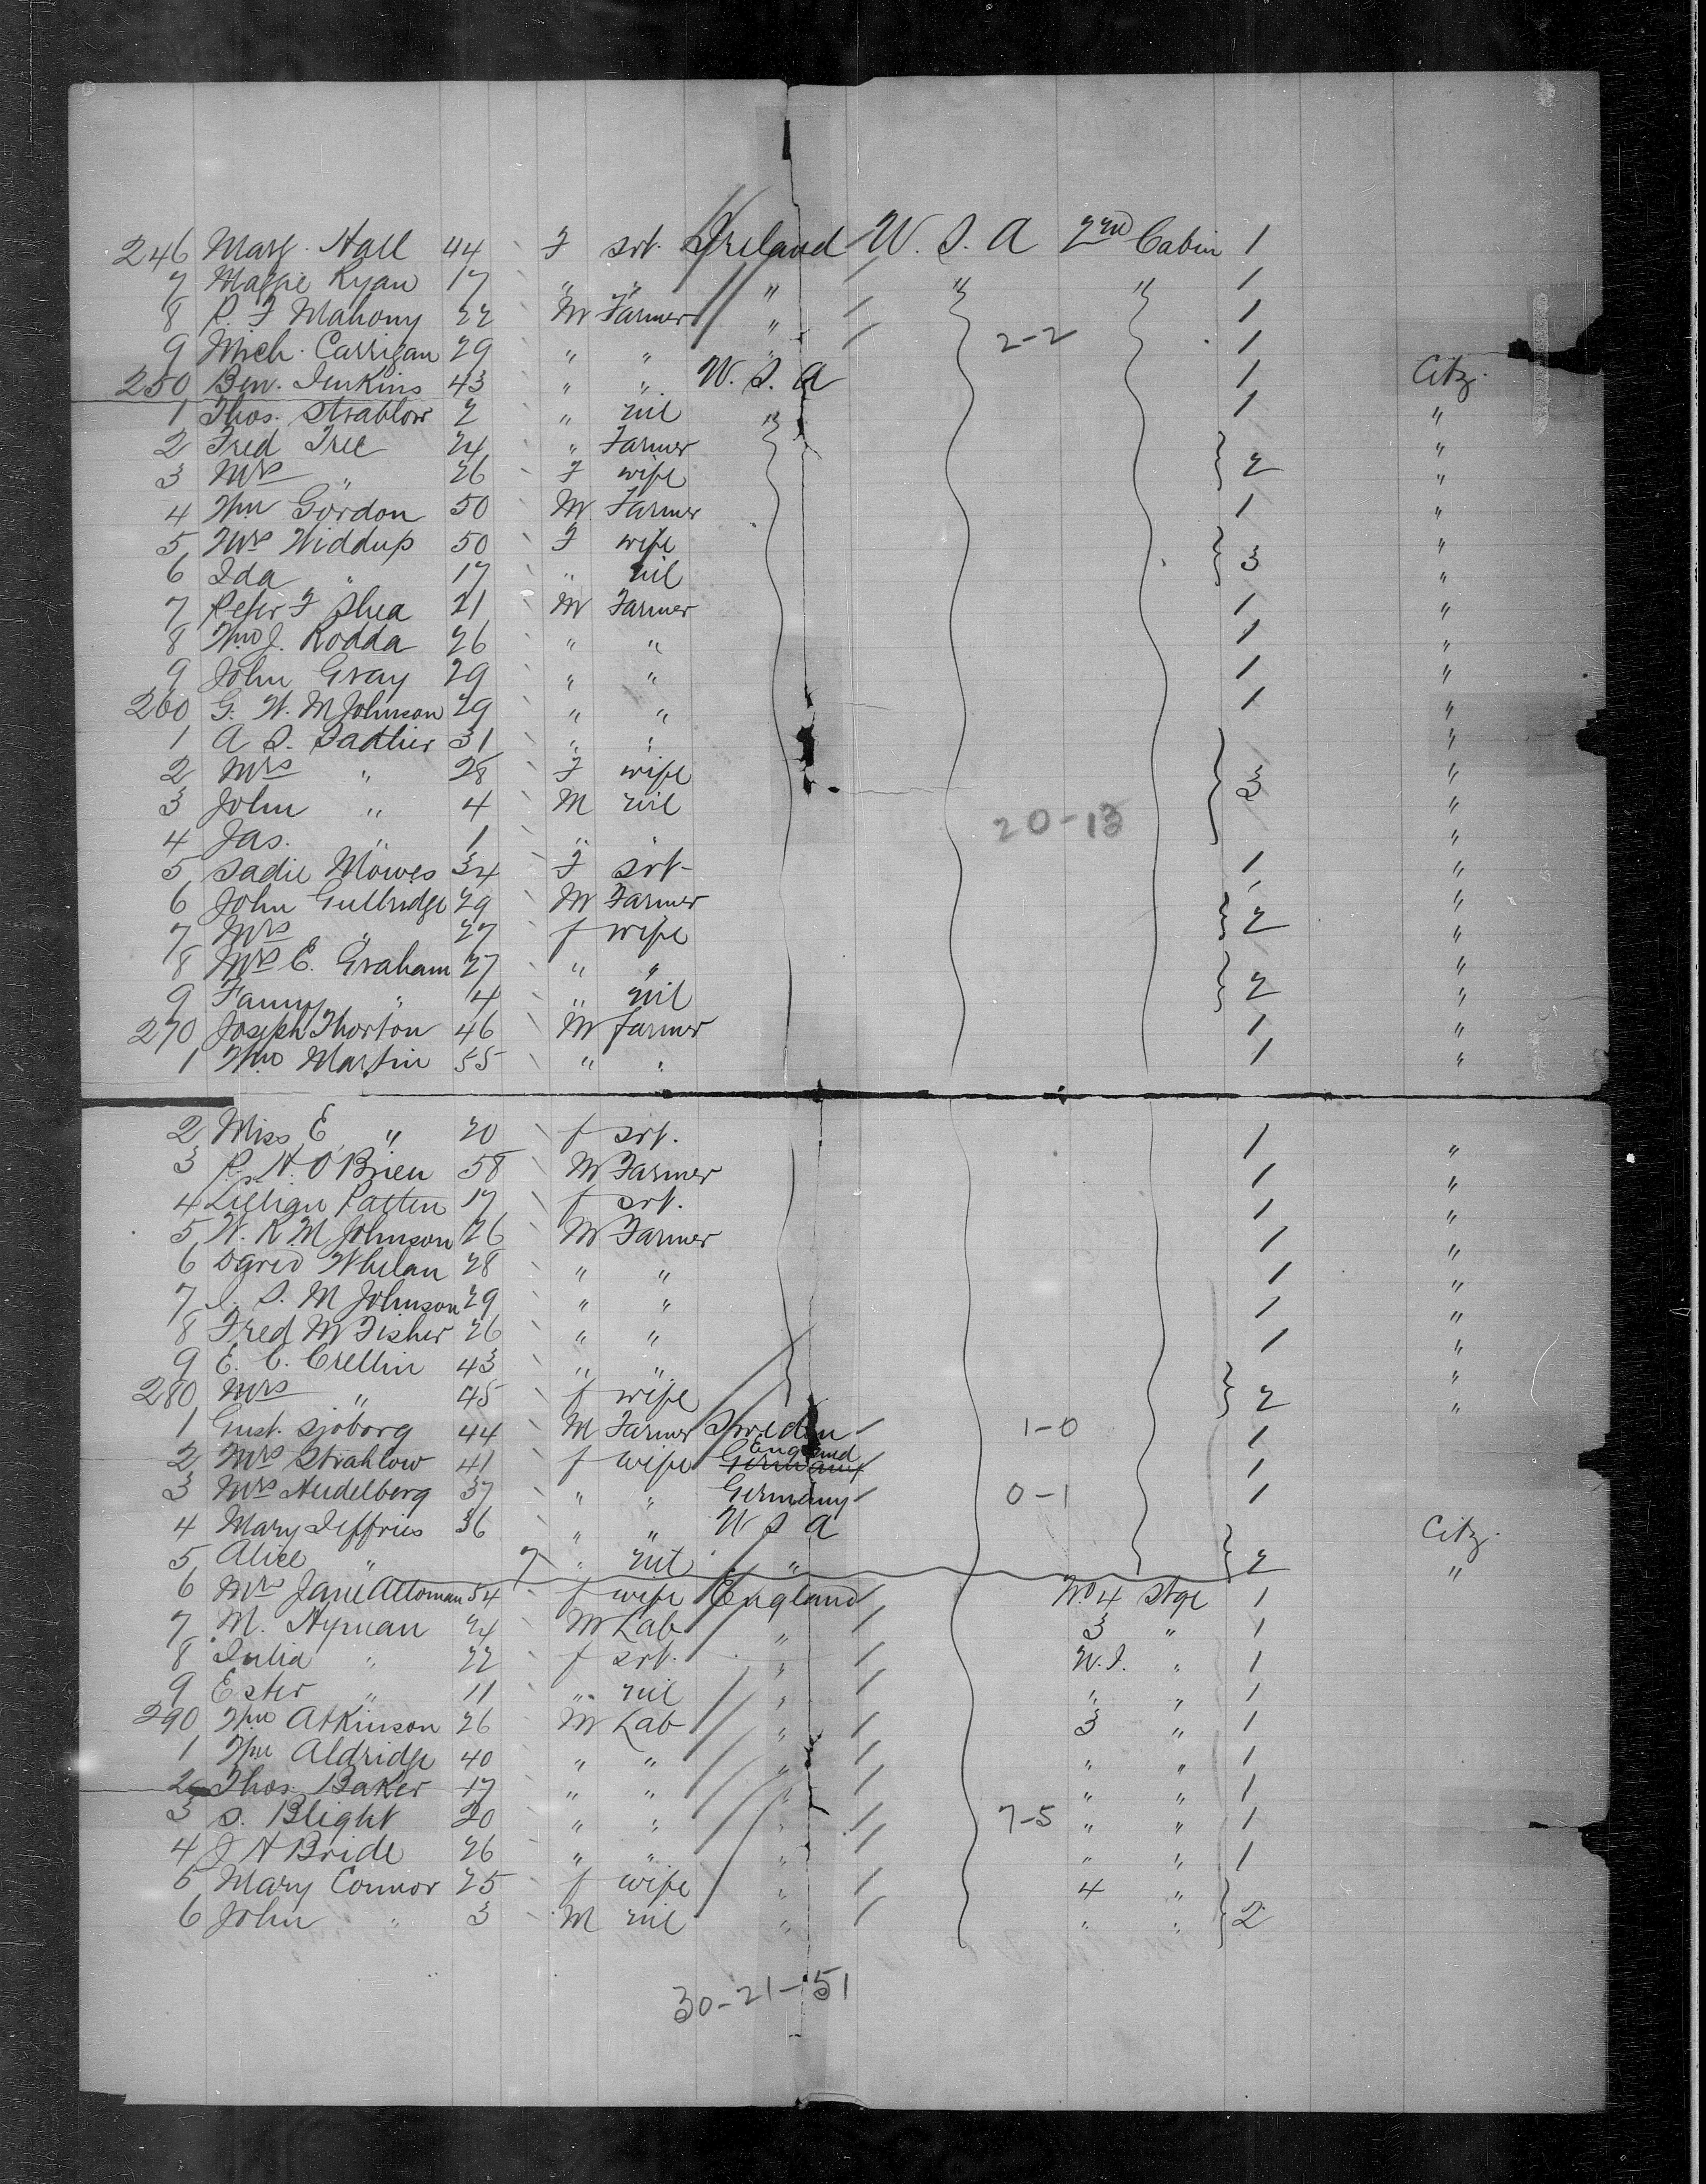 246 Marg. Hall 44 F srt. Ireland U. S. A 2nd Cabin 1
7 Maggie Ryan 17 " " " " " 1
8 P. F Mahony 22 M Farmer " 1
9 Mich. Carrigan 29 " " " 2-2 1
250 Ben. Jenkins 43 " " U. S. A 1 Citz.
1 Thos. Strahlow 2 " nil " 1 "
2 Fred Tree 24 " Farmer "
3 Mrs " 26 F wife 2 "
4 Wm Gordon 50 M Farmer 1 "
5 Mrs Widdup 50 F wife "
6 Ida " 17 " nil 3 "
7 Peter F Shea 21 M Farmer 1 "
8 Wm J. Rodda 26 " " 1 "
9 John Gray 29 " " 1 "
260 G. W. M Johnson 29 " " 1 "
1 A S. Sadlier 31 " " "
2 Mrs " 28 F wife 3 "
3 John " 4 M nil "
4 Jas. " 1 " " 20-13 "
5 Sadie Mowes 34 F srt- 1 "
6 John Gullridge 29 M Farmer "
7 Mrs " 27 f wife 2 "
8 Mrs E. Graham 27 " " "
9 Fanny " 4 " nil 2 "
270 Joseph Thorton 46 M farmer 1 "
1 Wm Martin 55 " " 1 "
2 Miss E " 20 f srt. 1 "
3 P. H. O'Brien 58 M Farmer 1 "
4 Lillian Patten 17 f srt. 1 "
5 W. R. M Johnson 26 M Farmer 1 "
6 David Whelan 28 " " 1 "
7 S. M Johnson 29 " " 1 "
8 Fred M Fisher 26 " " 1 "
9 E. C. Crellin 43 " " "
280 Mrs " 45 f wife 2 "
1 Gust. Sjoborg 44 M Farmer Sweden 1-0 1
2 Mrs Strahlow 41 f wife Germany England 1
3 Mrs Heidelberg 37 " " Germany 0-1 1
4 Mary Jeffries 36 " " U S A Citz.
5 Alice " 7 " nil " 2 "
6 Mrs Jane Alloman 54 f wife England No 4 Stge 1
7 M. Hyman 24 M Lab " 3 " 1
8 Julia " 22 f srt. " W.I. " 1
9 Ester " 11 " nil " " " 1
290 Wm Atkinson 26 M Lab " 3 " 1
1 Wm Aldridge 40 " " " " " 1
2 Thos. Baker 17 " " " " " 1
3 S. Blight 20 " " " 7-5 " " 1
4 J H Bride 26 " " " " " 1
5 Mary Connor 25 f wife " 4 "
6 John " 3 M nil " " " 2
30-21-51